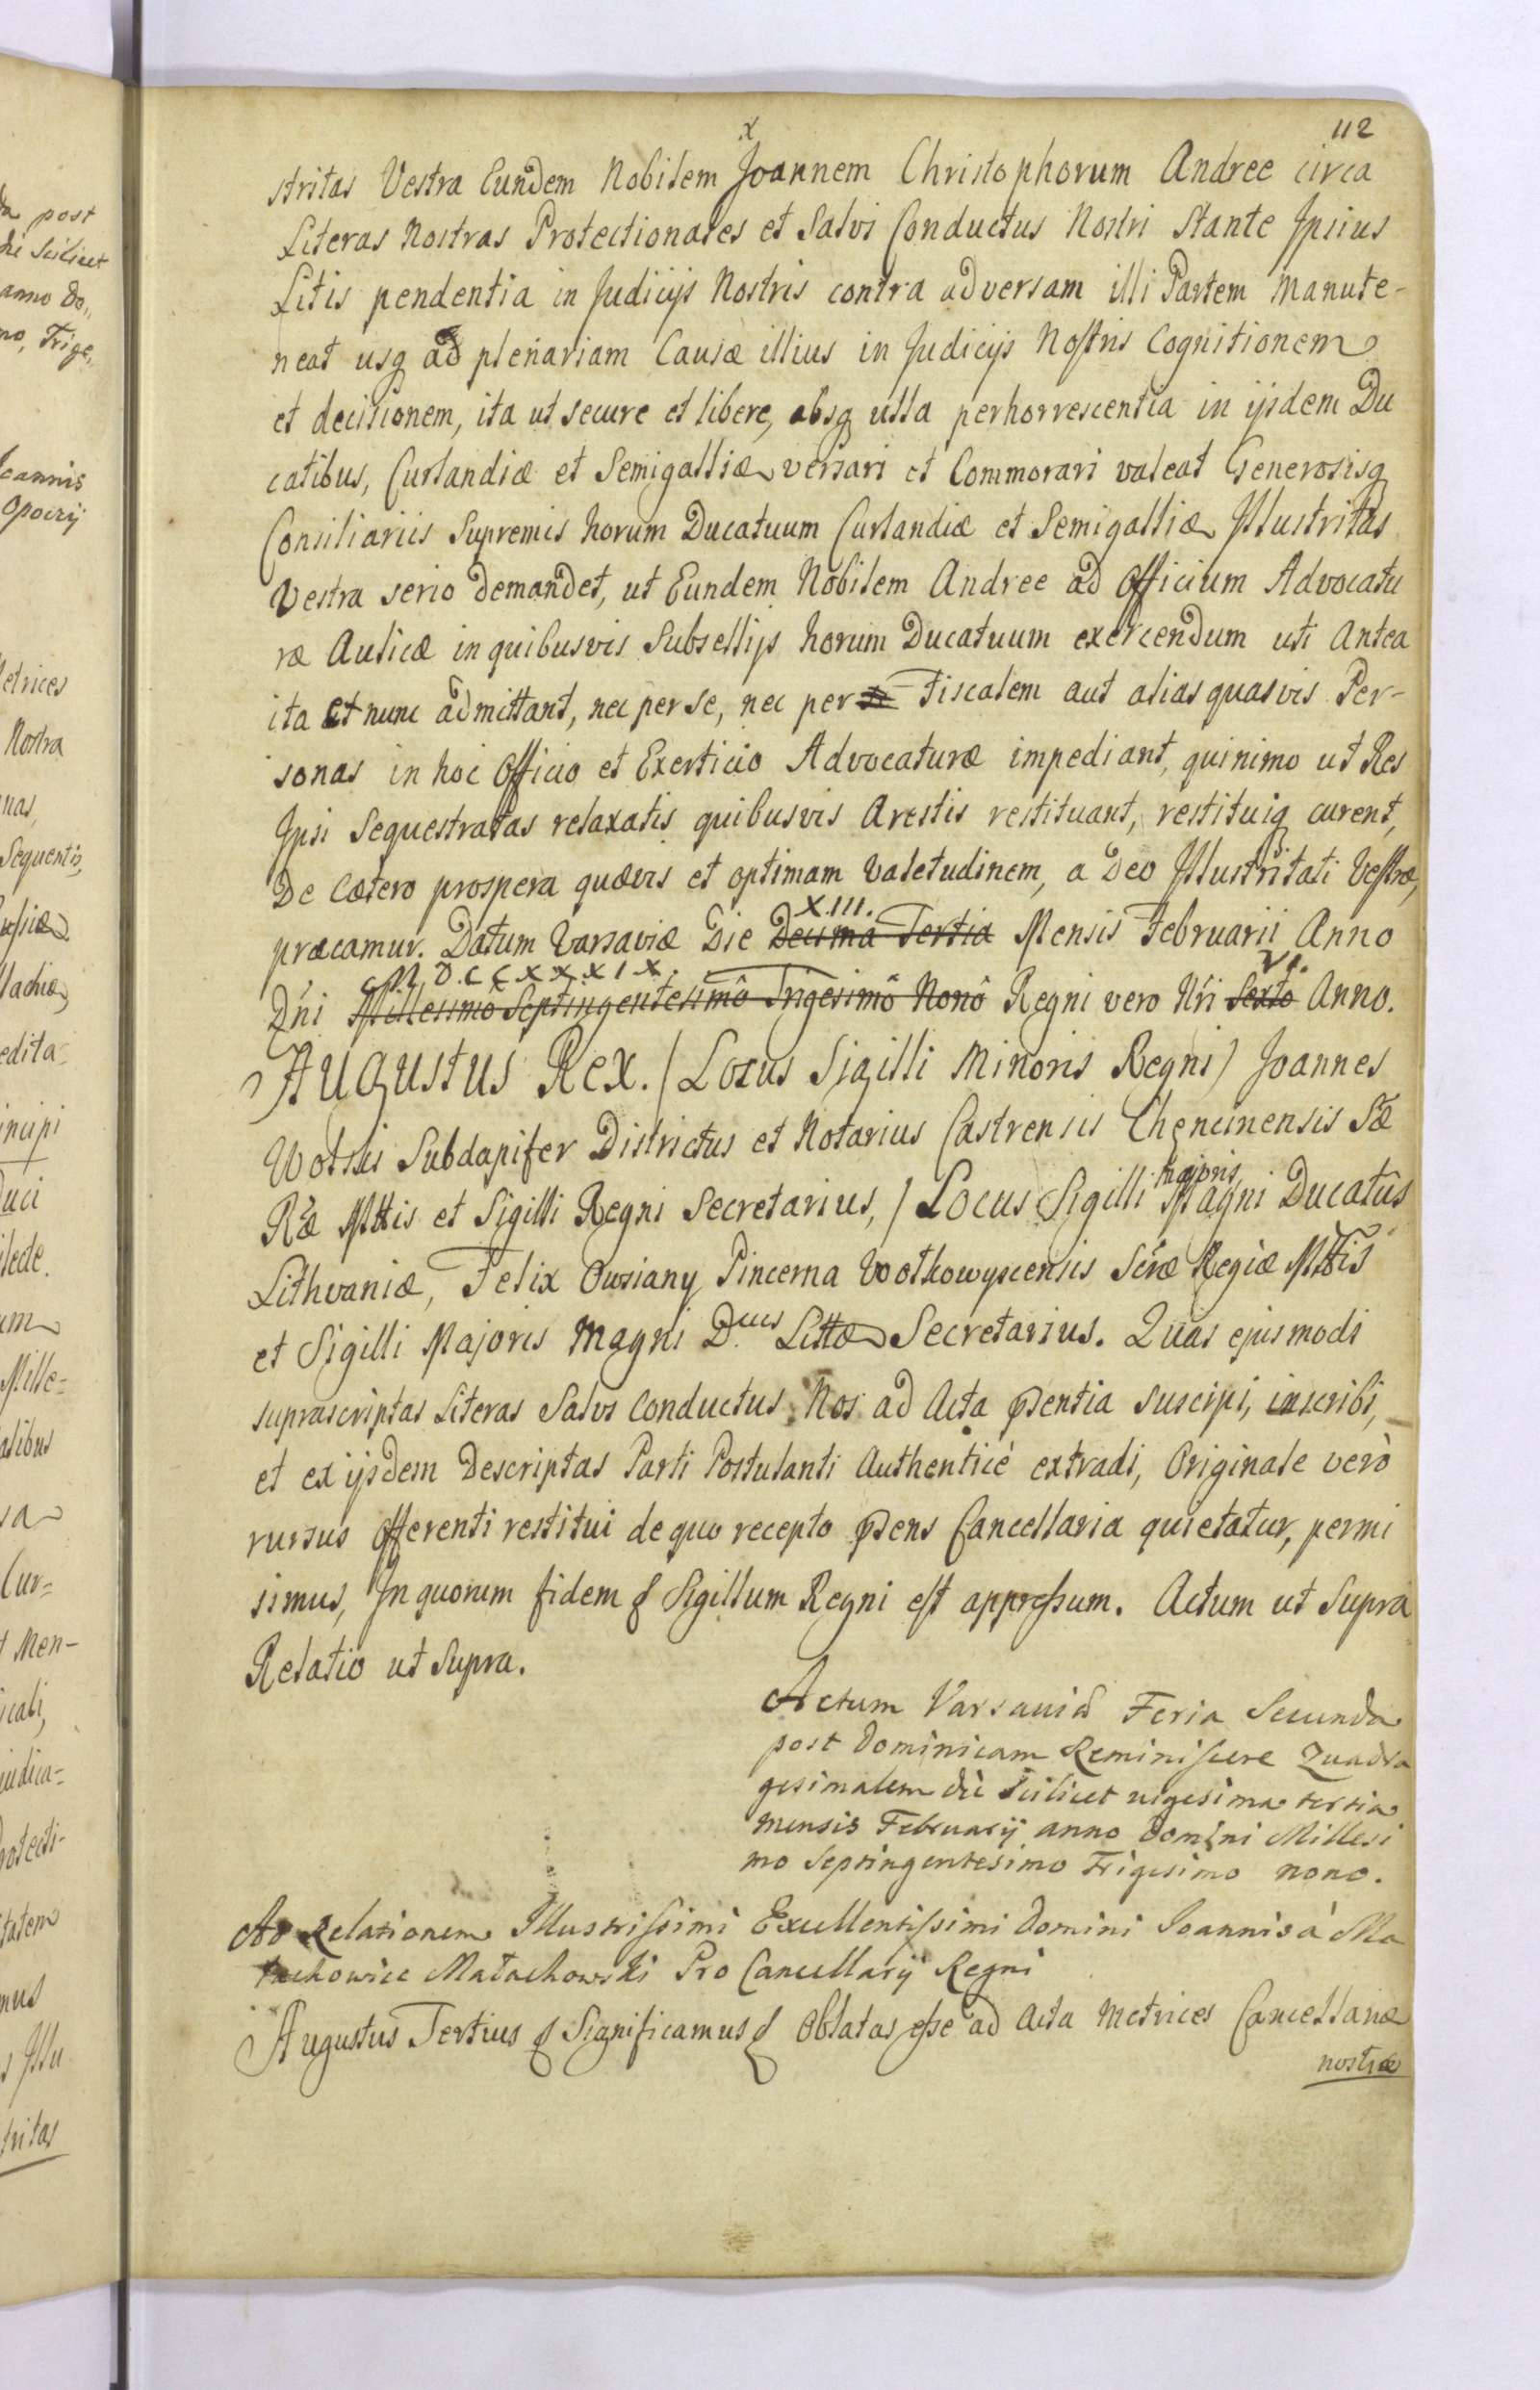 112
x
stritas Vestra Eundem Nobilem Joannem Christophorum Andree circa
Literas Nostras Protectionales et Salvi Conductus Nostri Stante Ipsius
Litis pendentia in Judicijs Nostris contra adversam illi Partem Manute-
neat usq ad plenariam Causæ illius in Judicijs Nostris Cognitionem
et decisionem, ita ut secure et libere, absq ulla perhorrescentia in ijsdem Du
catibus, Curlandiæ et Semigalliæ versari et Commorari valeat Generosisq
Consiliariis Supremis horum Ducatuum Curlandiæ et Semigalliæ Illustritas
Vestra serio demandet, ut Eundem Nobilem Andree ad Officium Advocatu
ræ Aulicæ in quibusvis Subsellijs horum Ducatuum exercendum uti Antea
ita et nunc admittant, nec per se, nec per se Fiscalem aut alias quasvis Per-
sonas in hoc Officio et Exerticio Advocaturæ impediant, quinimo ut Res
Ipsi Sequestratas relaxatis quibusvis Arestis restituant, restituiq curent,
De Cætero prospera quævis et optimam Valetudinem, a Deo Illustritati Vestræ,
XIII.
præcamur. Datum Varsaviæ Die Decima Tertia Mensis Februarii Anno
M D.CCXXXIX. VI.
Dn̄i Millesimô Septingentesimô Trigesimô Nonô Regni vero Nr̄i Sextô Anno.
Augustus Rex. / Locus Sigilli Minoris Regni / Joannes
Wolski Subdapifer Districtus et Notarius Castrensis Chencinensis Sæ
Ræ Mttis et Sigilli Regni Secretarius, / Locus Sigilli majoris Magni Ducatûs
Lithvaniæ, Felix Owsiany Pincerna Wołkowyscensis Sēræ Regiæ Mttis
et Sigilli Majoris Magni D.cus Littæ Secretarius. Quas ejusmodi
suprascriptas Literas Salvi Conductus Nos ad Acta pꝛsentia suscipi, inscribi,
et ex ijsdem Descriptas Parti Postulanti Authenticè extradi, Originale verò
rursus Offerenti restitui de quo recepto pꝛsens Cancellaria quietatur, permi
simus, In quorum fidem & Sigillum Regni est appressum. Actum ut Supra
Relatio ut Supra.
Actum Varsaviæ Feria Secunda
post Dominicam Reminiscere Quadra
gesimalem die scilicet vigesima tertia
mensis Februarij anno Domini Millesi
mo Septingentesimo Trigesimo nono.
Ad Relationem Illustrissimi Excellentissimi Domini Ioannis à Ma
łachowice Małachowski Pro Cancellarij Regni
Augustus Tertius & Significamus & Oblatas esse ad Acta Metrices Cancellariæ
nostræ